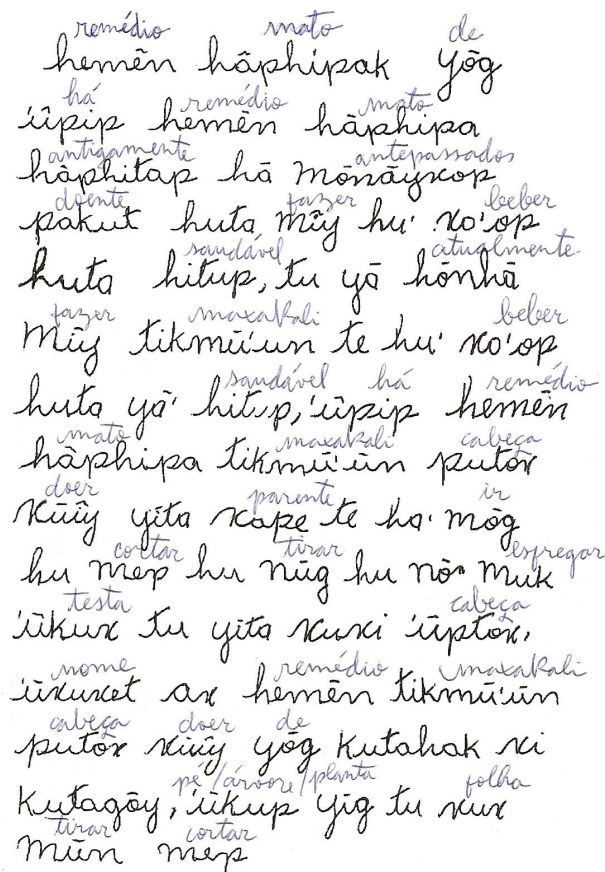 remédio mato de
hemẽn hãphipak yõg
há remédio mato
'ũpip hemẽn hãphipa
antigamente antepassados
hãphitap hã mõnãyxop
doente fazer beber
pakut huta, mĩy hu' xo'op
saudável atualmente
huta hitup, tu yã hõnhã
fazer maxakali beber
mĩy tikmũ'ũn te hu' xo'op
saudável há remédio
huta yã' hitup, 'ũpip hemẽn
mato maxakali cabeça
hãphipa tikmũ'ũn putox
doer parente ir
xũĩy yĩta xape te ha' mõg
cortar tirar esfregar
hu mep hu nũg hu nõ" muk
testa cabeça
'ũkux tu yĩta xuxi 'ũptox,
nome remédio maxakali
'ũxuxet ax hemẽn tikmũ'ũn
cabeça doer de
putox xũĩy yõg kutahak xi
pé/árvore/planta folha
kutagõy, 'ũkup yĩg tu xux
tirar cortar
mũn mep